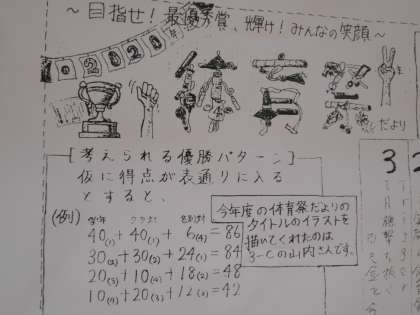 ～目指せ！最優秀賞、輝け！みんなの笑顔～
2020
体育祭
だより
[考えられる優勝パターン]
仮に得点が表通りに入る
とすると、
(例) 学年
40(1)+40(1)+6(4)=86
30(2)+30(2)+24(1)=84
20(3)+10(4)+18(2)=48
10(4)+20(3)+12(3)=42
今年度の体育祭だよりの
タイトルのイラストを
描いてくれたのは
3-Cの山内さんです。
3
2